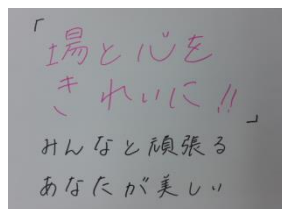 「場と心を
きれいに!!」
みんなと頑張る
あなたが美しい